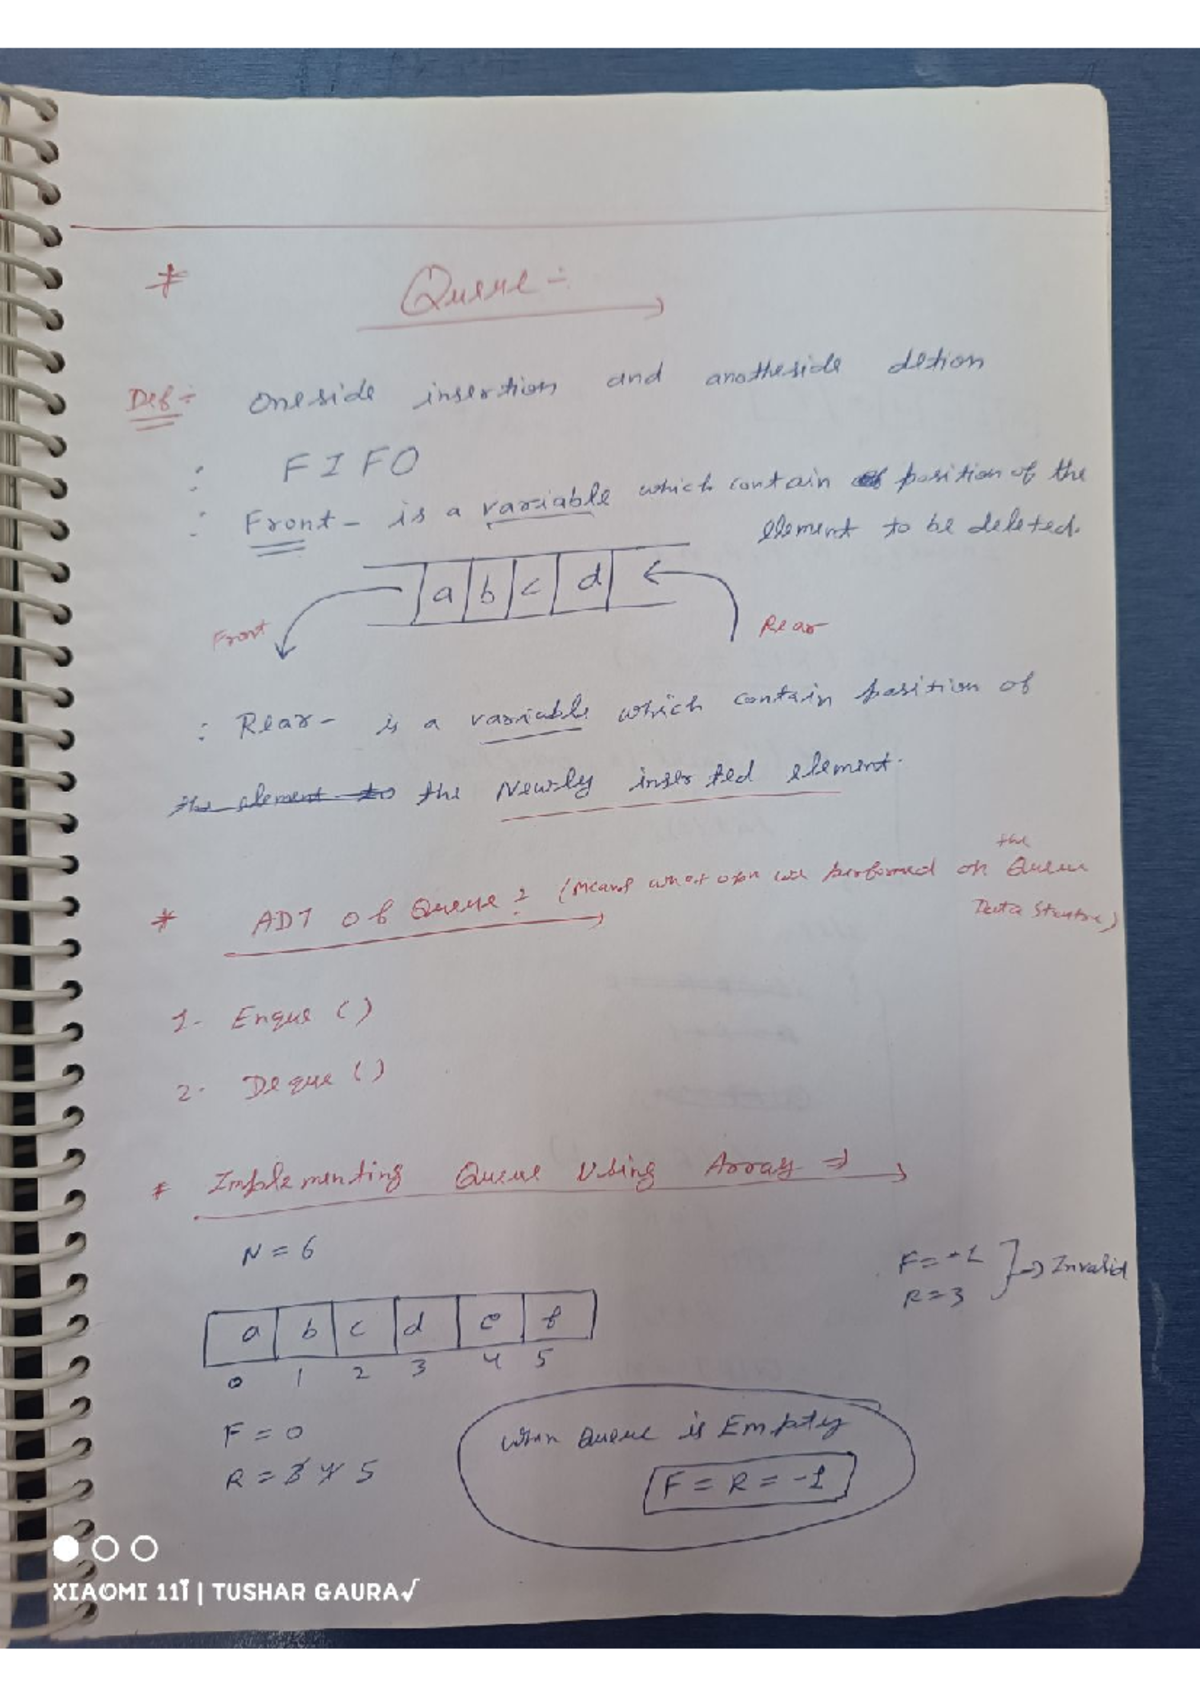 * Queue :-
Def :- One side insertion and anotheside detion
: FIFO
: Front - is a variable which contain position of the
element to be deleted.
a b c d
Front
Rear
: Rear - is a variable which contain position of
the element to the Newly inserted element.
* ADT of Queue : (Means what opn we performed on the Queue
Data Structure)
1- Enque ( )
2- Deque ( )
* Implementing Queue Using Array ⇒
N = 6
F = -1
R = 3 } ⇒ Invalid
a b c d e f
0 1 2 3 4 5
F = 0
R = 3 4 5
When Queue is Empty
F = R = -1
XIAOMI 11i | TUSHAR GAURA√